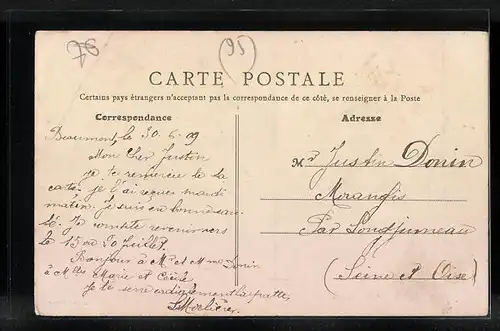 76
95
CARTE POSTALE
Certains pays étrangers n'acceptant pas la correspondance de ce côté, se renseigner à la Poste
Correspondance
Beaumont, le 30-6-09
Mon Cher Justin
je te remercie de ta
carte, je l'ai reçue mardi
matin. Je suis en bonne san-
té. Je compte revenir vers
le 15 ou 20 juillet.
Bonjour à Mr et Mme Donin
à Mlle Marie et
Je te serre cordialement la patte,
Adresse
Mr Justin Donin
Morangis
Par Longjumeau
(Seine et Oise)